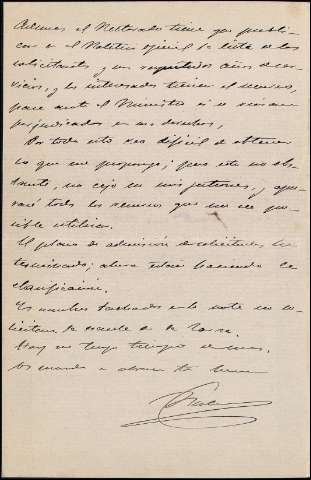 Además el Rectorado tiene que publi-
car en el Boletin oficial la lista de los
solicitantes y sus respectivos años de ser-
vicios, y los interesados tienen el recurso,
para ante el Ministro si se creen
perjudicados en sus derechos,
Por todo esto sea difícil de obtener
lo que me propongo; pero esto no obs-
tante, no cejo en mis gestiones, y apu-
raré todos los recursos que me sea po-
sible utilizar.
El plazo de admisión de solicitudes ha
terminado; ahora están haciendo la
clasificación.
en la nota no
de escuela de la
Hoy no tengo tiempo de mas.
Os manda a abrazo tu